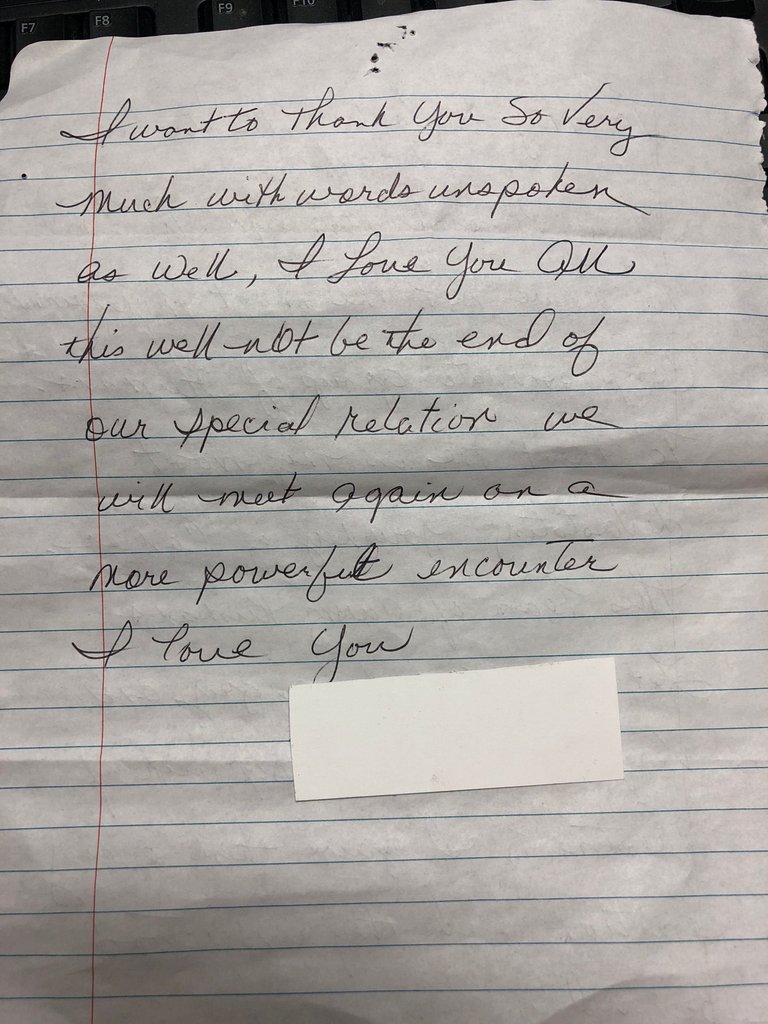 F7 F8 F9 F10
I want to Thank You So Very
Much with words unspoken
as well, I Love You All
this well not be the end of
our special relation we
will meet again on a
more powerful encounter
I Love You